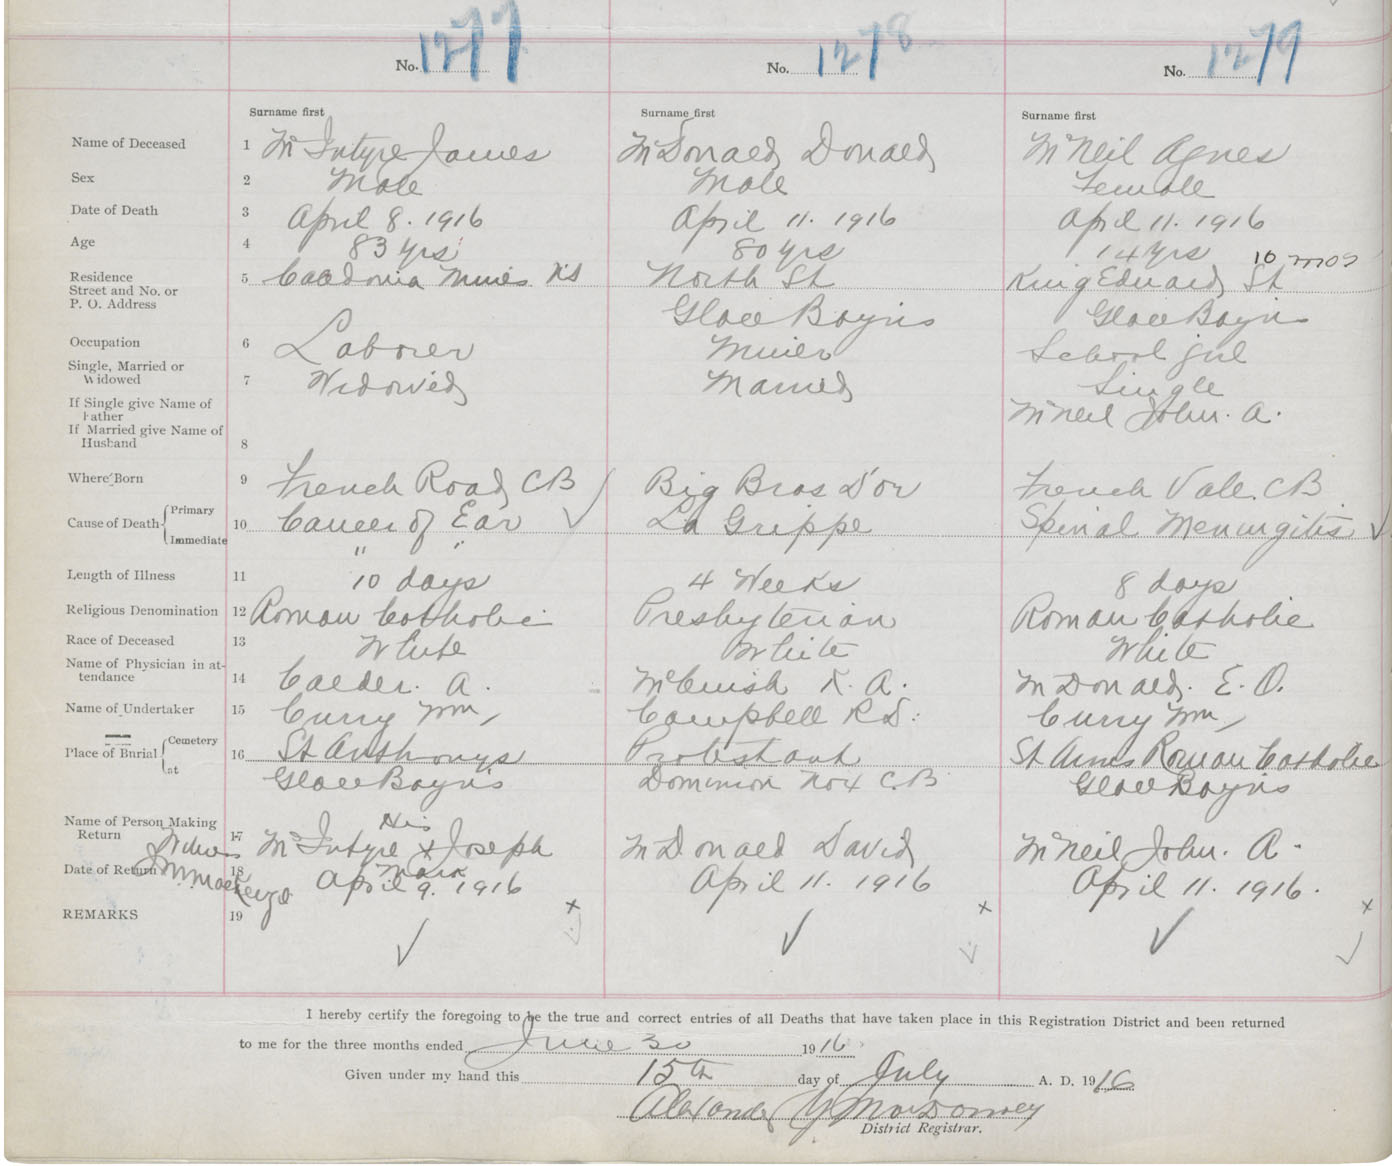 No. 1277 No. 1278 No. 1279
Surname first Surname first Surname first
Name of Deceased 1 McIntyre James McDonald Donald McNeil Agnes
Sex 2 Male Male Female
Date of Death 3 April 8. 1916 April 11. 1916 April 11. 1916
Age 4 83 yrs 80 yrs 14 yrs 10 mos
Residence
Street and No. or
P. O. Address 5 Caledonia Mines North St King Edward St
Glace Bay NS Glace Bay NS
Occupation 6 Laborer Miner School girl
Single, Married or
Widowed 7 Widowed Married Single
If Single give Name of
Father McNeil John. A.
If Married give Name of
Husband 8
Where Born 9 French Road CB Big Bras D'or French Vale. CB
Cause of Death Primary
Immediate 10 Cancer of Ear La Grippe Spinal Meningitis
" "
Length of Illness 11 10 days 4 Weeks 8 days
Religious Denomination 12 Roman Catholic Presbyterian Roman Catholic
Race of Deceased 13 White White White
Name of Physician in at-
tendance 14 Calder. A. McCuish K. A. McDonald. E. O.
Name of Undertaker 15 Curry Wm, Campbell R D. Curry Wm,
Place of Burial Cemetery
at 16 St Anthonys Protestant St Anns Roman Catholic
Glace Bay NS Dominion No 4 C.B Glace Bay NS
Name of Person Making
Return 17 McIntyre His x Mark Joseph McDonald David McNeil John. A.
Witness
Date of Return 18 April 9. 1916 April 11. 1916 April 11. 1916.
REMARKS 19 x x x
I hereby certify the foregoing to be the true and correct entries of all Deaths that have taken place in this Registration District and been returned
to me for the three months ended June 30 1916
Given under my hand this 15th day of July A. D. 1916
Alexander
District Registrar.